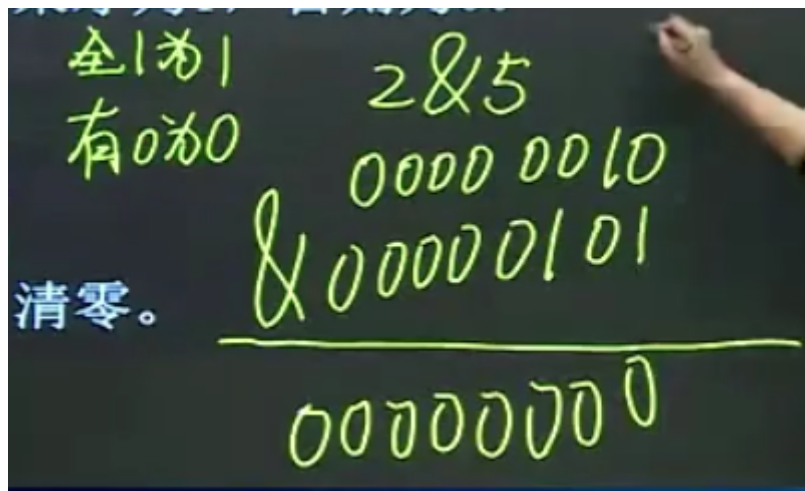 全1为1
2&5
有0为0
0000 0010
&00000101
清零。
00000000